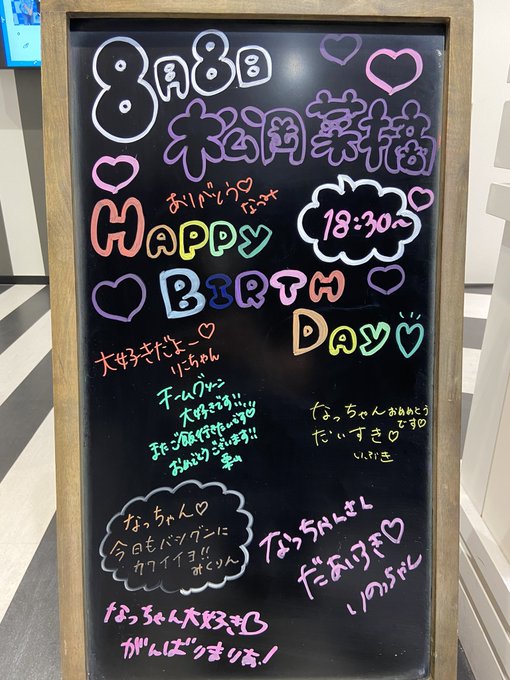 8月8日
松岡菜摘
ありがとう♡
なつみ
18:30〜
HAPPY
BIRTH
DAY♡
大好きだよー♡
りーちゃん
チームグリーン
大好きです!!!
またご飯行きたいです♡
おめでとうございます!!
なっちゃんおめめとう
です♡
だいすき♡
いぶき
なっちゃん♡
今日もバツグンに
カワイイヨ!!
みくりん
なっちゃんさん
だあいすき♡
いのっちゃん
なっちゃん大好き♡
がんばりまりあ!